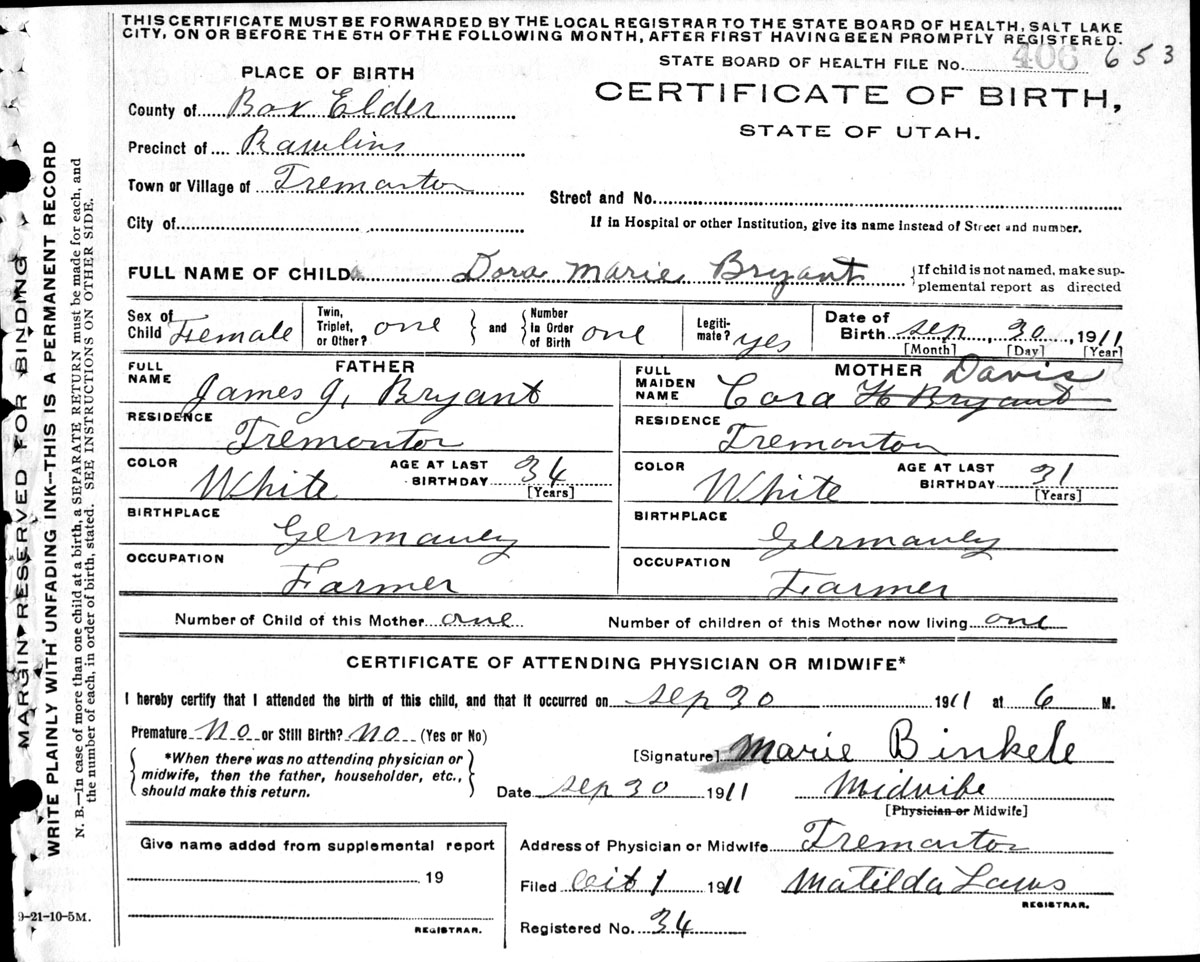 THIS CERTIFICATE MUST BE FORWARDED BY THE LOCAL REGISTRAR TO THE STATE BOARD OF HEALTH, SALT LAKE
CITY, ON OR BEFORE THE 5TH OF THE FOLLOWING MONTH, AFTER FIRST HAVING BEEN PROMPTLY REGISTERED.
STATE BOARD OF HEALTH FILE NO. 406 653
PLACE OF BIRTH
CERTIFICATE OF BIRTH,
STATE OF UTAH.
County of Box Elder
Precinct of Rawlins
Town or Village of Tremonton
Street and No.
City of
If in Hospital or other Institution, give its name instead of Street and number.
FULL NAME OF CHILD Dora Marie Bryant {If child is not named, make sup-
plemental report as directed
Sex of Child Female
Twin, Triplet, or Other? one } and { Number in Order of Birth one
Legiti-mate? yes
Date of Birth Sep, 30, 1911
[Month] [Day] [Year]
FATHER
FULL NAME James J, Bryant
RESIDENCE Tremonton
COLOR White AGE AT LAST BIRTHDAY 34 [Years]
BIRTHPLACE Germaney
OCCUPATION Farmer
MOTHER
FULL MAIDEN NAME Cora H Bryant Davis
RESIDENCE Tremonton
COLOR White AGE AT LAST BIRTHDAY 31 [Years]
BIRTHPLACE Germaney
OCCUPATION Farmer
Number of Child of this Mother one Number of children of this Mother now living one
CERTIFICATE OF ATTENDING PHYSICIAN OR MIDWIFE*
I hereby certify that I attended the birth of this child, and that it occurred on Sep 30 1911 at 6 M.
Premature No or Still Birth? No (Yes or No)
*When there was no attending physician or
midwife, then the father, householder, etc.,
should make this return.
[Signature] Marie Binkele
Date Sep 30 1911 Midwife
[Physician or Midwife]
Give name added from supplemental report
19
REGISTRAR.
Address of Physician or Midwife Tremonton
Filed Oct 1 1911 Matilda Laws
REGISTRAR.
Registered No. 34
MARGIN RESERVED FOR BINDING
WRITE PLAINLY WITH UNFADING INK--THIS IS A PERMANENT RECORD
N. B.—In case of more than one child at a birth, a SEPARATE RETURN must be made for each, and
the number of each, in order of birth, stated. SEE INSTRUCTIONS ON OTHER SIDE.
9-21-10-5M.